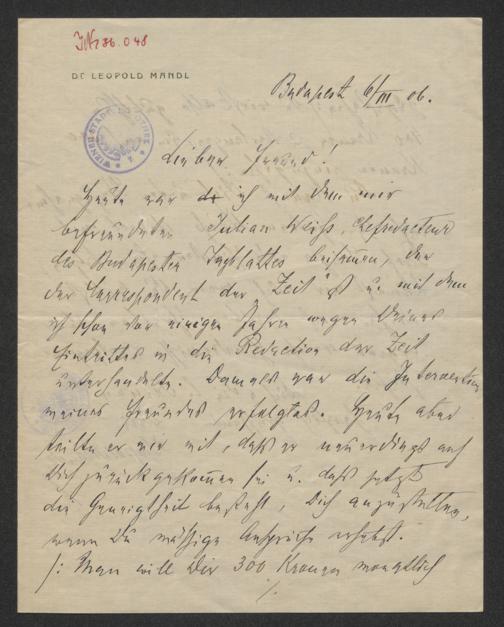 J.N. 36.048
DR LEOPOLD MANDL
WIENER STADTBIBLIOTHEK
Budapest 6/III 06.
Lieber Freund!
Heute war ich mit dem mir
befreundeten Julian Weiß, Chefredacteur
des Budapester Tagblattes beisammen, der
der Correspondent der "Zeit" ist u. mit dem
ich schon vor einigen Jahren wegen Deines
Eintrittes in die Redaction der Zeit
unterhandelte. Damals war die Intervention
meines Freundes erfolglos. Heute aber
teilte er mir mit, daß er neuerdings auf
Dich zurückgekommen sei u. daß jetzt
die Geneigtheit besteht, Dich anzustellen,
wenn Du mäßige Ansprüche erhebst.
/: Man will Dir 300 Kronen monatlich
./.